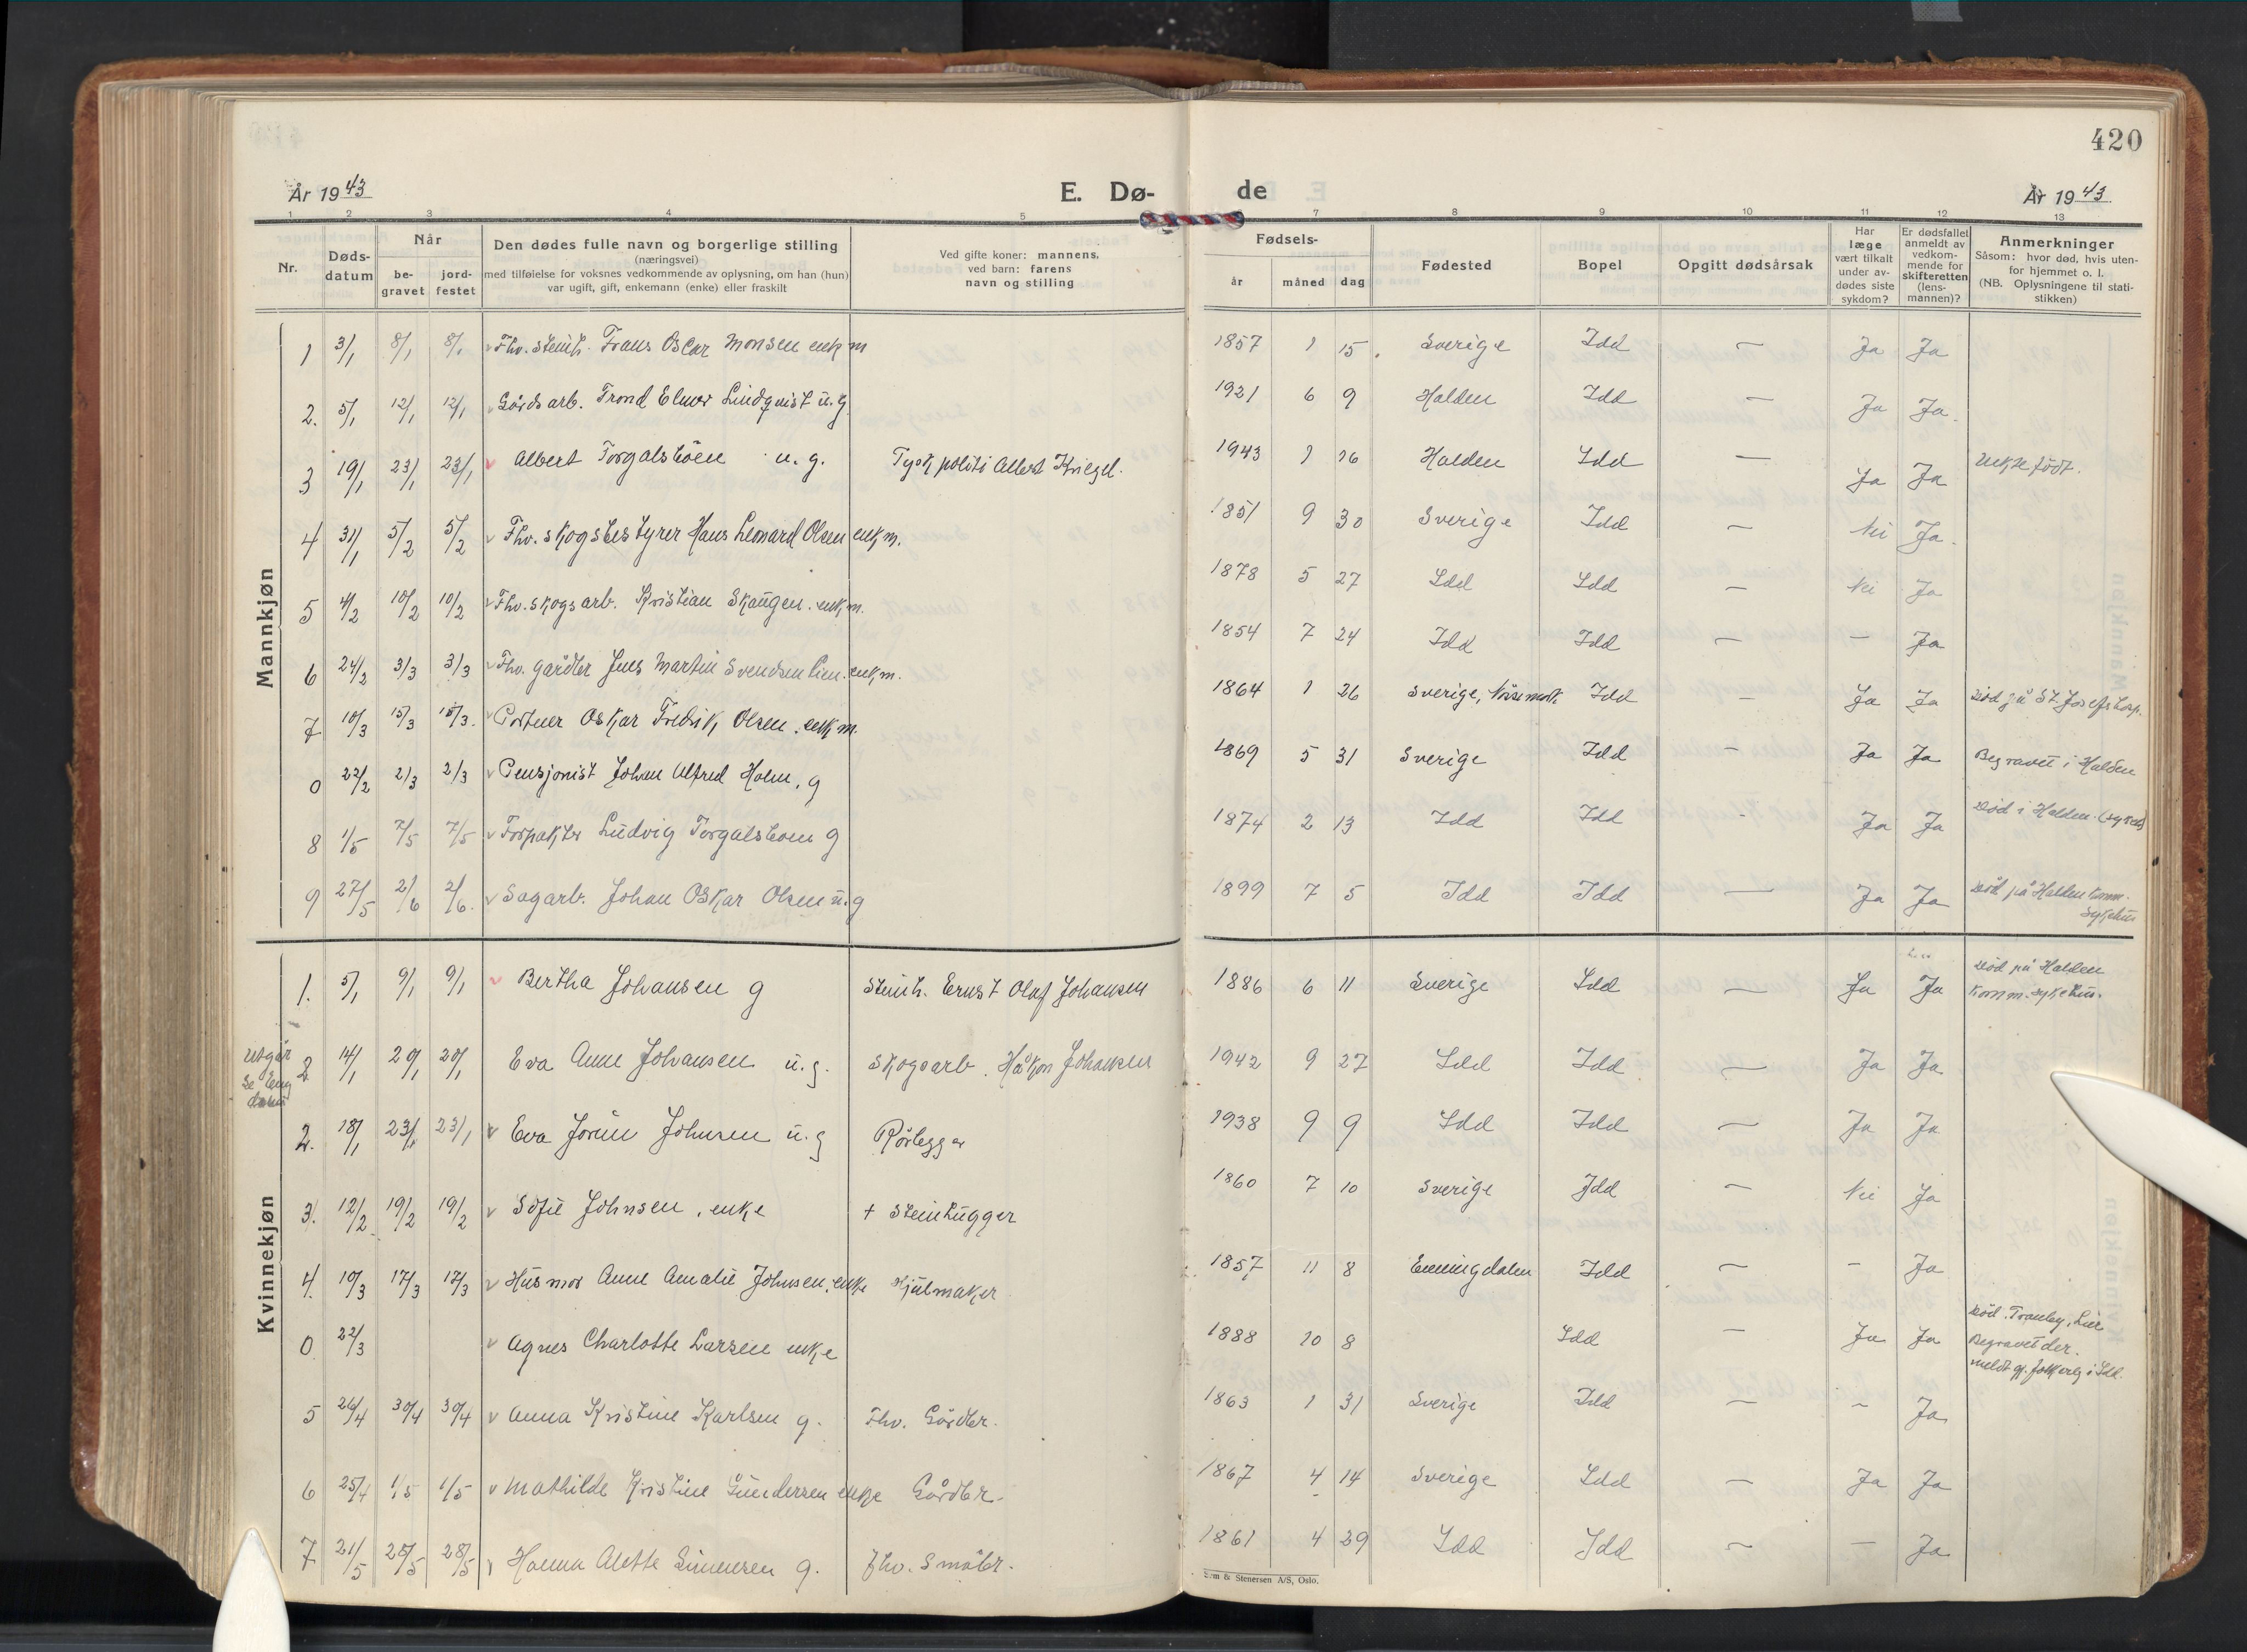 420
År 1943
E. Dø-
de
År 1943.
1 2 3 4 5 7 8 9 10 11 12 13
Nr.
Døds-
datum
Når
be-
gravet
jord-
festet
Den dødes fulle navn og borgerlige stilling
(næringsvei)
med tilføielse for voksnes vedkommende av oplysning, om han (hun)
var ugift, gift, enkemann (enke) eller fraskilt
Ved gifte koner: mannens,
ved barn: farens
navn og stilling
Fødsels-
år måned dag
Fødested
Bopel
Opgitt dødsårsak
Har
læge
vært tilkalt
under av-
dødes siste
sykdom?
Er dødsfallet
anmeldt av
vedkom-
mende for
skifteretten
(lens-
mannen)?
Anmerkninger
Såsom: hvor død, hvis uten-
for hjemmet o. l.
(NB. Oplysningene til stati-
stikken)
Mannkjøn
1 3/1 8/1 8/1 Fhv. steinh. Frans Oscar Monsen enkm 1857 1 15 Sverige Idd — Ja Ja
2. 5/1 12/1 12/1 Gårdsarb. Trond Elmer Lindqvist u.g 1921 6 9 Halden Idd — Ja Ja.
3 19/1 23/1 23/1 Albert Torgalsbøen u.g. Tysk politi Albert Kriegel. 1943 1 16 Halden Idd — Ja Ja Uekte født.
4 31/1 5/2 5/2 Fhv. skogsbestyrer Hans Leonard Olsen enkm. 1851 9 30 Sverige Idd — Nei Ja.
5 4/2 10/2 10/2 Fhv. skogsarb. Kristian Skaugen. enkm. 1878 5 27 Idd Idd — Nei Ja
6 24/2 3/3 3/3 Fhv. gårdbr Jens Martin Svendsen Lien. enkm. 1854 7 24 Idd Idd — — Ja
7 10/3 15/3 15/3. Portner Oskar Fredrik Olsen. enkm. 1864 1 26 Sverige, Idd — Ja Ja Død på St. Josefs hosp.
0 22/2 2/3 2/3 Pensjonist Johan Alfred Holm. g 1869 5 31 Sverige Idd — Ja Ja Begravet i Halden
8 1/5 7/5 7/5 Forpakter Ludvig Torgalsboen g 1874 2 13 Idd Idd - Ja Ja Død i Halden. (sykeh)
9 27/5 2/6 2/6. Sagarb. Johan Oskar Olsen u.g 1899 7 5 Idd Idd — Ja Ja Død på Halden komm.
sykehus
Kvinnekjøn
1. 5/1 9/1 9/1 Bertha Johansen g Steinh. Ernst Olaf Johansen 1886 6 11 Sverige Idd — Ja Ja Død på Halden
komm. sykehus.
Utgår
se Eng
2 14/1 20/1 20/1 Eva Anne Johansen u.g. Skogsarb. Håkon Johansen 1942 9 27 Idd Idd — Ja Ja
2. 18/1 23/1 23/1 Eva Jorun Johnsen u.g Rørlegger 1938 9 9 Idd Idd — Ja Ja
3. 12/2 19/2 19/2 Sofie Johnsen. enke + Steinhugger 1860 7 10 Sverige Idd — Nei Ja
4. 10/3 17/3 17/3 Husmor Anne Amalie Johnsen. enke Hjulmaker 1857 11 8 Enningdalen Idd — - Ja
0 22/3 Agnes Charlotte Larsen enke 1888 10 8 Idd — Ja Ja Død. Tranby, Lier
Begravet der.
meldt gj. i Idd.
5 26/4 30/4 30/4 Anna Kristine Karlsen g. Fhv. Gårdbr. 1863 1 31 Sverige Idd — - Ja
6 25/4 1/5 1/5 Mathilde Kristine Gundersen enke Gårdbr. 1867 4 14 Sverige Idd — Ja Ja
7 21/5 28/5 28/5 Hanna Alette Simensen g. Fhv. Småbr. 1861 4 29 Idd Idd — — Ja
& Stenersen A/S, Oslo.